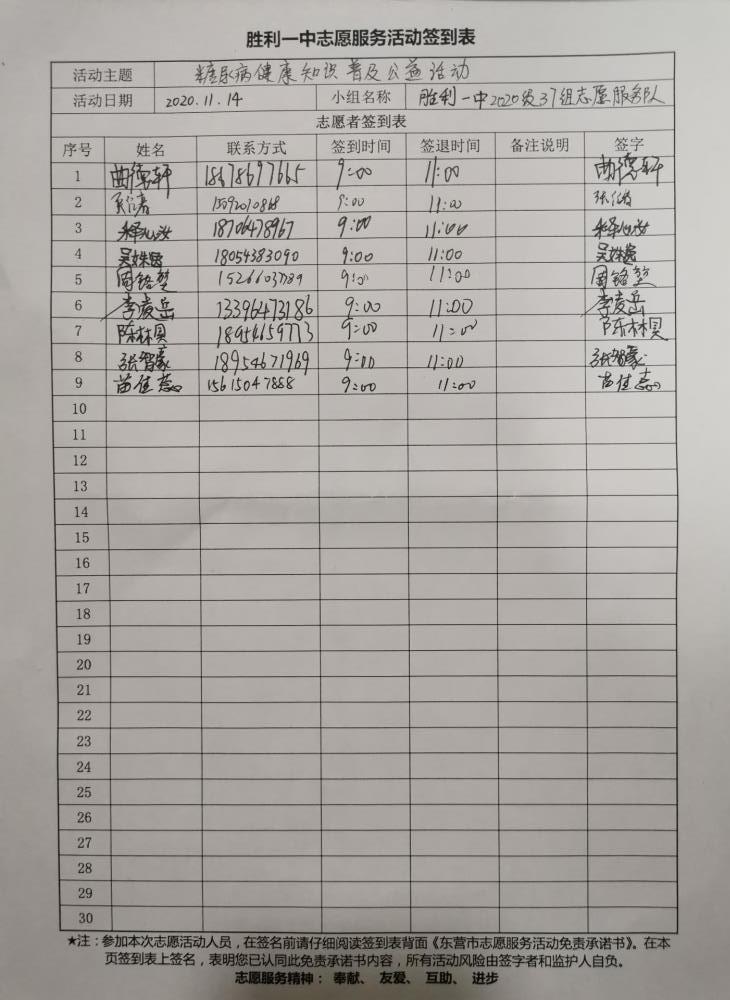 胜利一中志愿服务活动签到表
活动主题 糖尿病健康知识普及公益活动
活动日期 2020.11.14 小组名称 胜利一中2020级37组志愿服务队
志愿者签到表
序号 姓名 联系方式 签到时间 签退时间 备注说明 签字
1 曲德轩 18678697665 9:00 11:00 曲德轩
2 9:00 11:00
3 18706478967 9:00 11:00
4 18054383090 9:00 11:00
5 周铭堃 9:00 11:00 周铭堃
6 李凌岳 13396473186 9:00 11:00 李凌岳
7 陈林具 18954659773 9:00 11:00 陈林具
8 张智豪 18954671969 9:00 11:00 张智豪
9 苗佳蕊 15615047888 9:00 11:00 苗佳蕊
10
11
12
13
14
15
16
17
18
19
20
21
22
23
24
25
26
27
28
29
30
★注：参加本次志愿活动人员，在签名前请仔细阅读签到表背面《东营市志愿服务活动免责承诺书》。在本
页签到表上签名，表明您已认同此免责承诺书内容，所有活动风险由签字者和监护人自负。
志愿服务精神： 奉献、 友爱、 互助、 进步